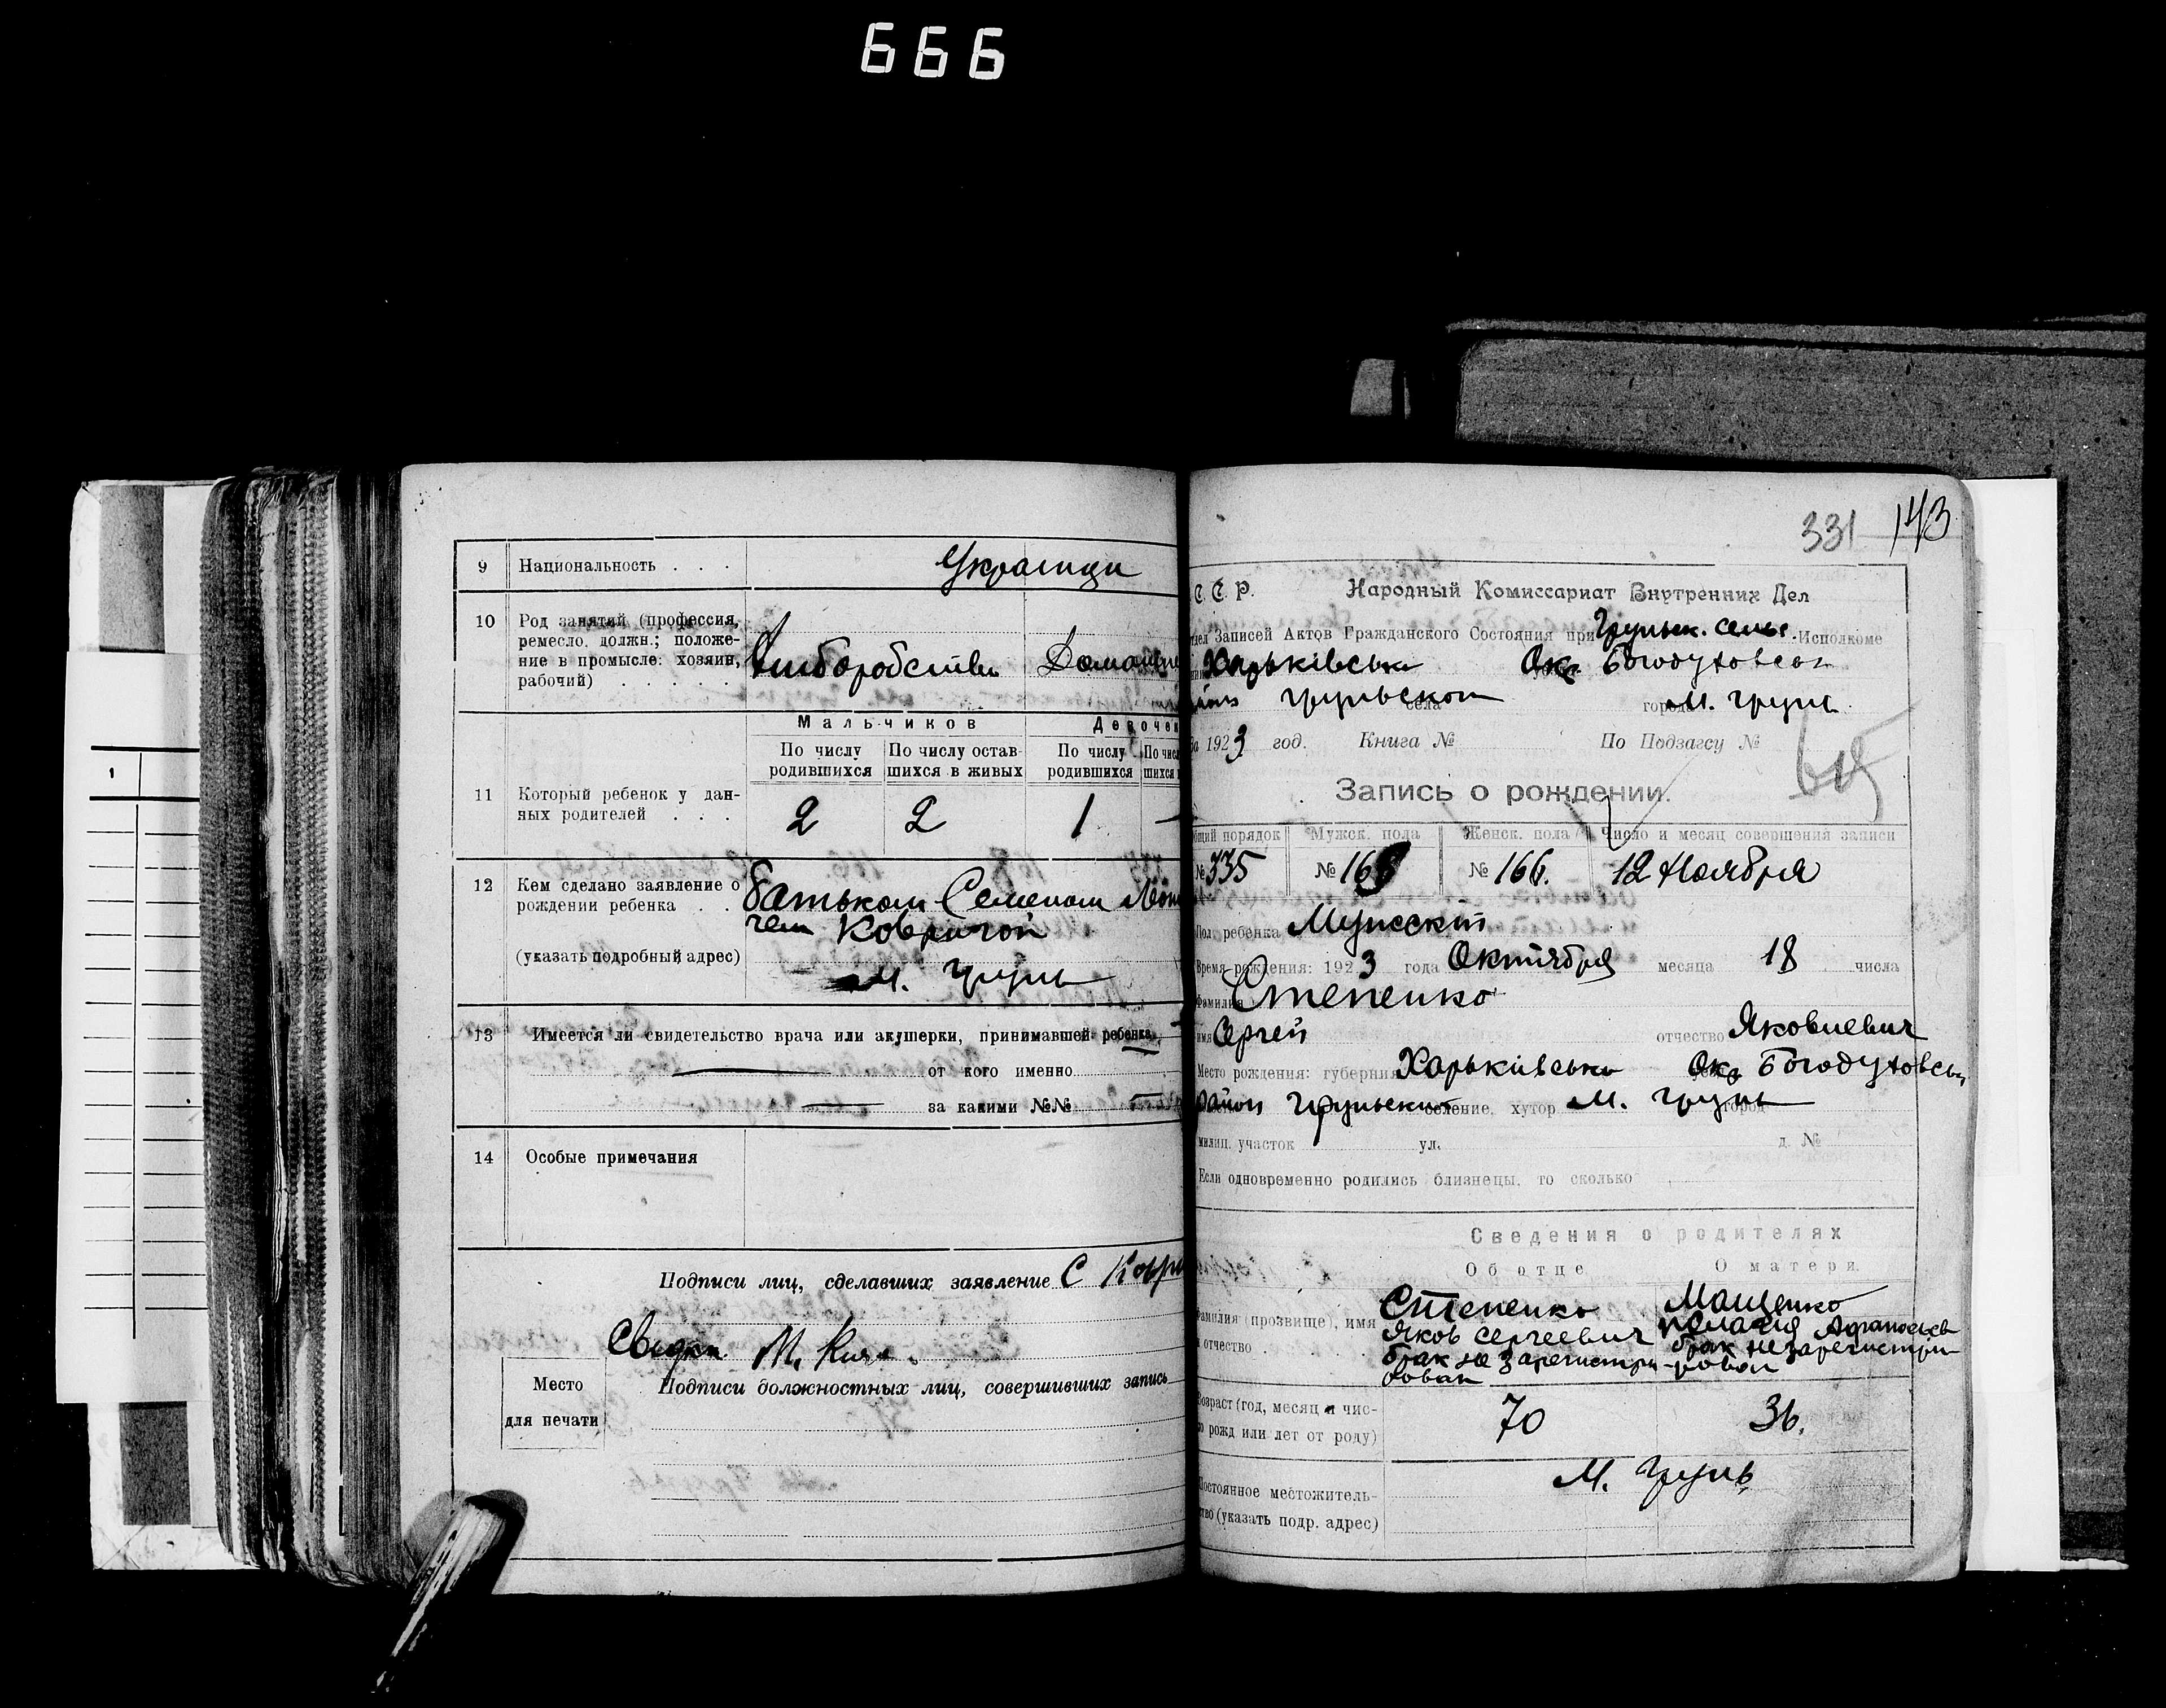 666
9 Национальность . . . Українци
10 Род занятий (профессия,
ремесло, должн.; положе-
ние в промысле: хозяин,
рабочий) . . . . .
Хлиборобство Домашне
11 Который ребенок у дан-
ных родителей . . .
Мальчиков Девочек
По числу родившихся
По числу остав-шихся в живых
По числу родившихся
По чис
шихся
2 2 1 —
12 Кем сделано заявление о
рождении ребенка . .
(указать подробный адрес)
батьком Семеном
чем Ковригой
м. Грунь
13 Имеется ли свидетельство врача или акушерки, принимавшей ребенка,
от кого именно
за какими №№
14 Особые примечания
Подписи лиц, сделавших заявление С Коври
Свидки М.
Место
для печати
Подписи должностных лиц, совершивших запись
331 143
С. С. Р. Народный Комиссариат Внутренних Дел
тдел Записей Актов Гражданского Состояния при Груньск. сельс. Исполкоме
Харьківська Окр. Богодуховськ
Груньской села города м. Грунь
за 1923 год. Книга № По Подзагсу №
Запись о рождении.
бщий порядок Мужск. пола Женск. пола Число и месяц совершения записи
№ 335 № 169 № 166. 12 Ноября
Пол ребенка Мужеский
Время рождения: 1923 года Октября месяца 18 числа
Фамилия Степенко
имя Сергей отчество Яковлевич
Место рождения: губерния Харькивська Окр Богодуховськ
район Груньский селение, хутор м. Грунь город
милиц. участок ул. д. №
Если одновременно родились близнецы, то сколько
Сведения о родителях
Об отце О матери.
Фамилия (прозвище), имя
и отчество . .
Степенко
Яков Сергеевич
брак не зарегистри
рован
Мащенко
Пелагея Афанасьев
брак незарегистри
-рован
Возраст (год, месяц и чис-
ло рожд или лет от роду)
70 36.
Постоянное местожитель-
ство (указать подр. адрес)
М. Грунь